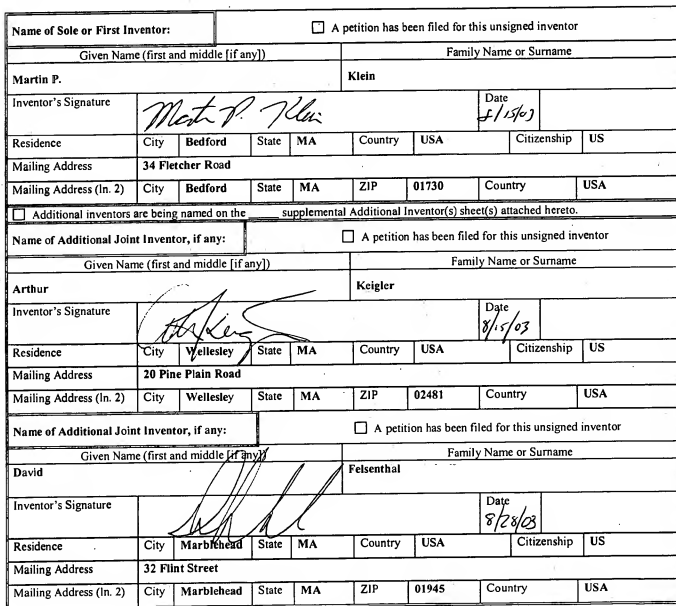 Name of Sole or First Inventor: ☐ A petition has been filed for this unsigned inventor
Given Name (first and middle [if any]) Family Name or Surname
Martin P. Klein
Inventor's Signature Martin P. Klein Date 8/15/03
Residence City Bedford State MA Country USA Citizenship US
Mailing Address 34 Fletcher Road
Mailing Address (ln. 2) City Bedford State MA ZIP 01730 Country USA
☐ Additional inventors are being named on the _____ supplemental Additional Inventor(s) sheet(s) attached hereto.
Name of Additional Joint Inventor, if any: ☐ A petition has been filed for this unsigned inventor
Given Name (first and middle [if any]) Family Name or Surname
Arthur Keigler
Inventor's Signature Date 8/15/03
Residence City Wellesley State MA Country USA Citizenship US
Mailing Address 20 Pine Plain Road
Mailing Address (ln. 2) City Wellesley State MA ZIP 02481 Country USA
Name of Additional Joint Inventor, if any: ☐ A petition has been filed for this unsigned inventor
Given Name (first and middle [if any]) Family Name or Surname
David Felsenthal
Inventor's Signature Date 8/28/03
Residence City Marblehead State MA Country USA Citizenship US
Mailing Address 32 Flint Street
Mailing Address (ln. 2) City Marblehead State MA ZIP 01945 Country USA